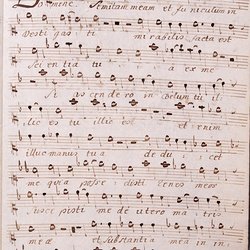 Domine. Semitam meam et funiculum in
vesti gas ti mirabilis facta est
Scientia tu a ex me
Si ascendero in coelum tu il
lic es tu illic est et enim
illuc manus tua de du cet
me quia posse disti renes meos
susce pisti me de utero ma tris
meae et substantia mea in in